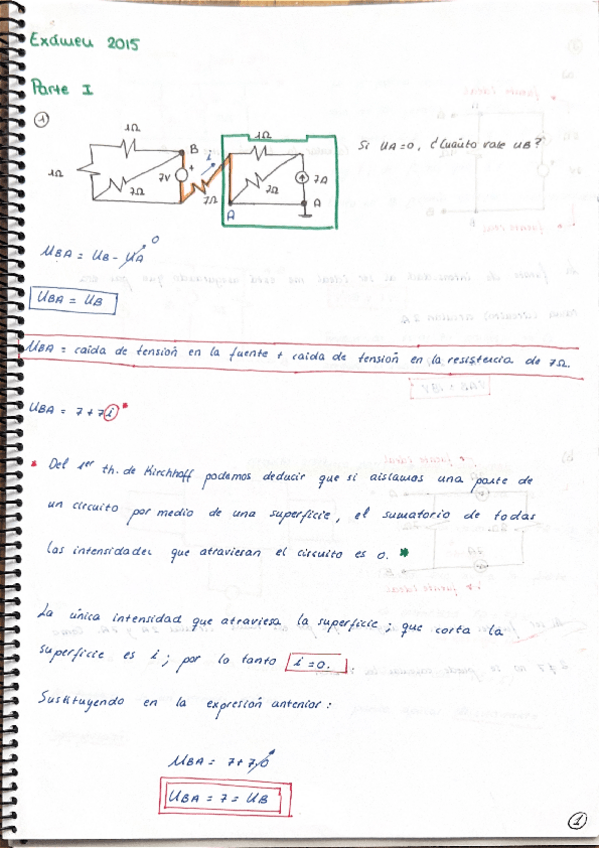 Exámen 2015
Parte I
1
1Ω
B
1Ω
7V
+
i
2Ω
7Ω
1Ω
7A
2Ω
A
A
Si UA=0, ¿Cuánto vale UB?
UBA = UB - UA 0
UBA = UB
UBA = caída de tensión en la fuente + caída de tensión en la resistencia de 7Ω.
UBA = 7 + 7i *
* Del 1er th. de Kirchhoff podemos deducir que si aislamos una parte de
un circuito por medio de una superficie, el sumatorio de todas
las intensidades que atraviesan el circuito es 0. *
La única intensidad que atraviesa la superficie; que corta la
superficie es i; por lo tanto i = 0.
Sustituyendo en la expresión anterior:
UBA = 7 + 7·0
UBA = 7 = UB
1